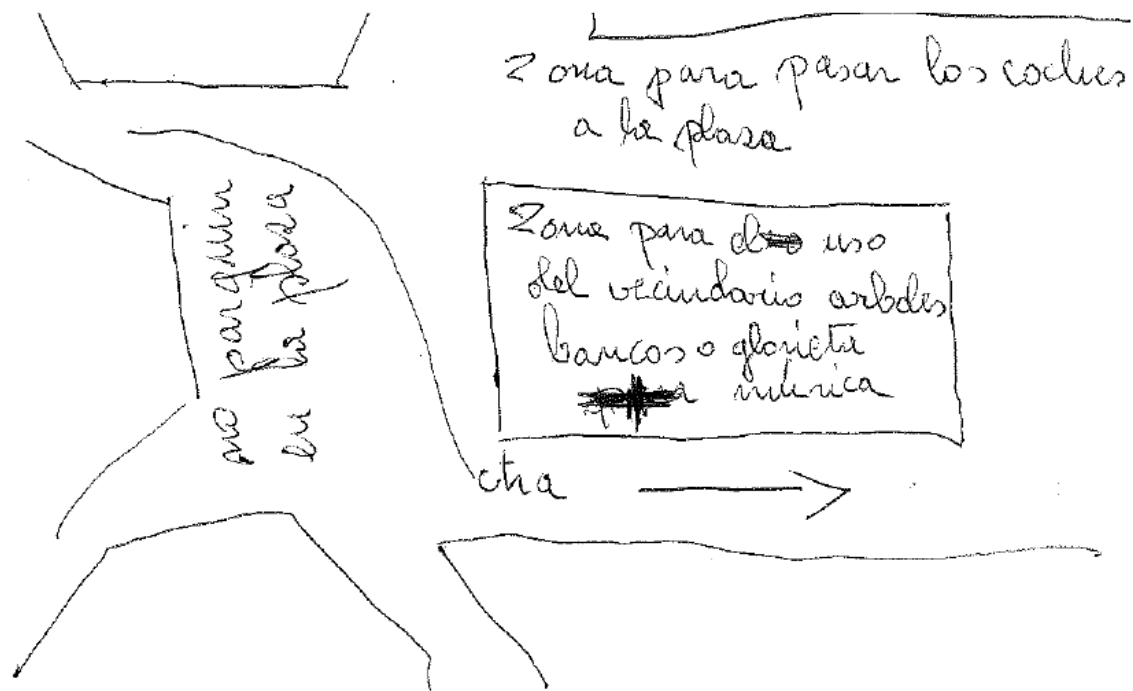 Zona para pasar los coches
a la plaza
no parquin
en la plaza
Zona para uso
del vecindario arboles
bancos o glorieta
musica
ctra